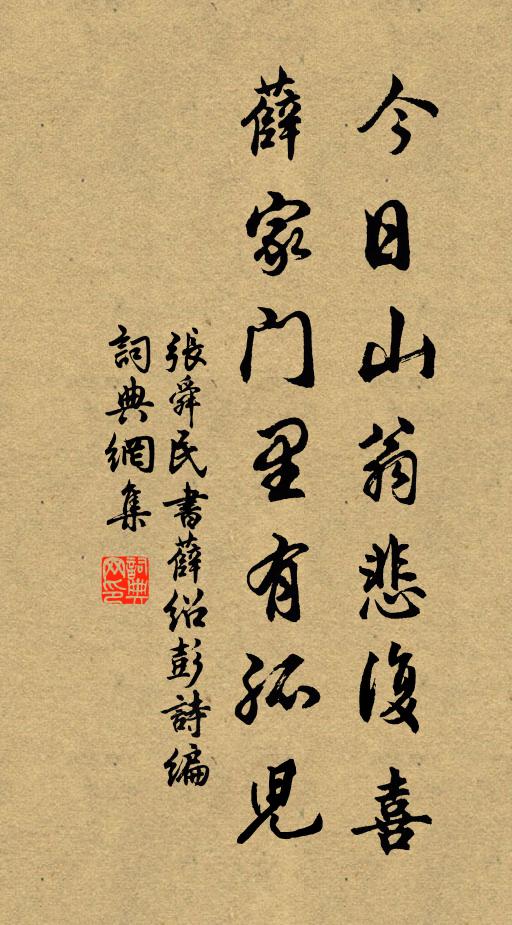 今日山翁悲復喜
薛家門里有孤児
張舜民書薛绍彭詩編
詞典網集
詞典
网印